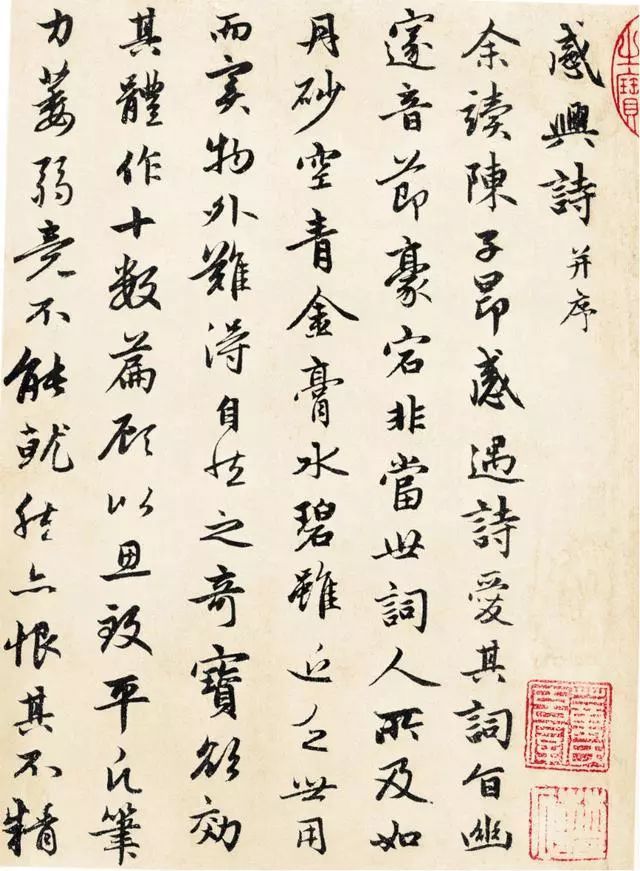 感興詩并序
余讀陳子昂感遇詩愛其詞旨幽
邃音節豪宕非當世詞人所及如
丹砂空青金膏水碧雖近乏世用
而實物外難得自然之奇寶欲効
其體作十數篇顧以思致平凡筆
力萎弱竟不能就然亦恨其不精